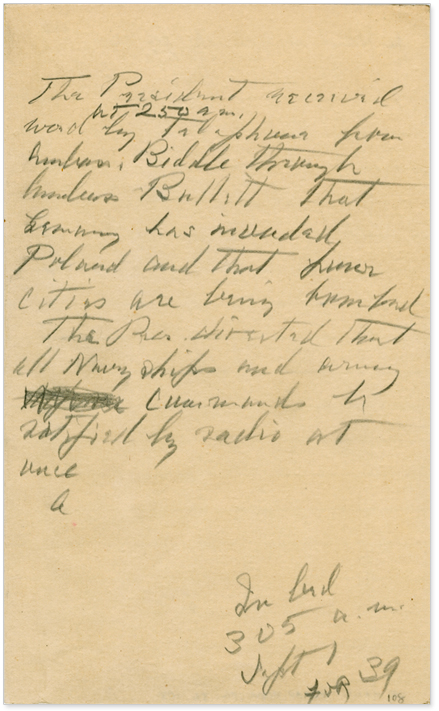 The President received
at 2 50 a.m.
word by telephone from
Ambas. Biddle through
Ambass Bullitt that
Germany has invaded
Poland and that four
cities are being bombed
The Pres. directed that
all Navy ships and army
commands be
notified by radio at
once
In bed
3 05 a.m.
Sept 1 39
FDR
108